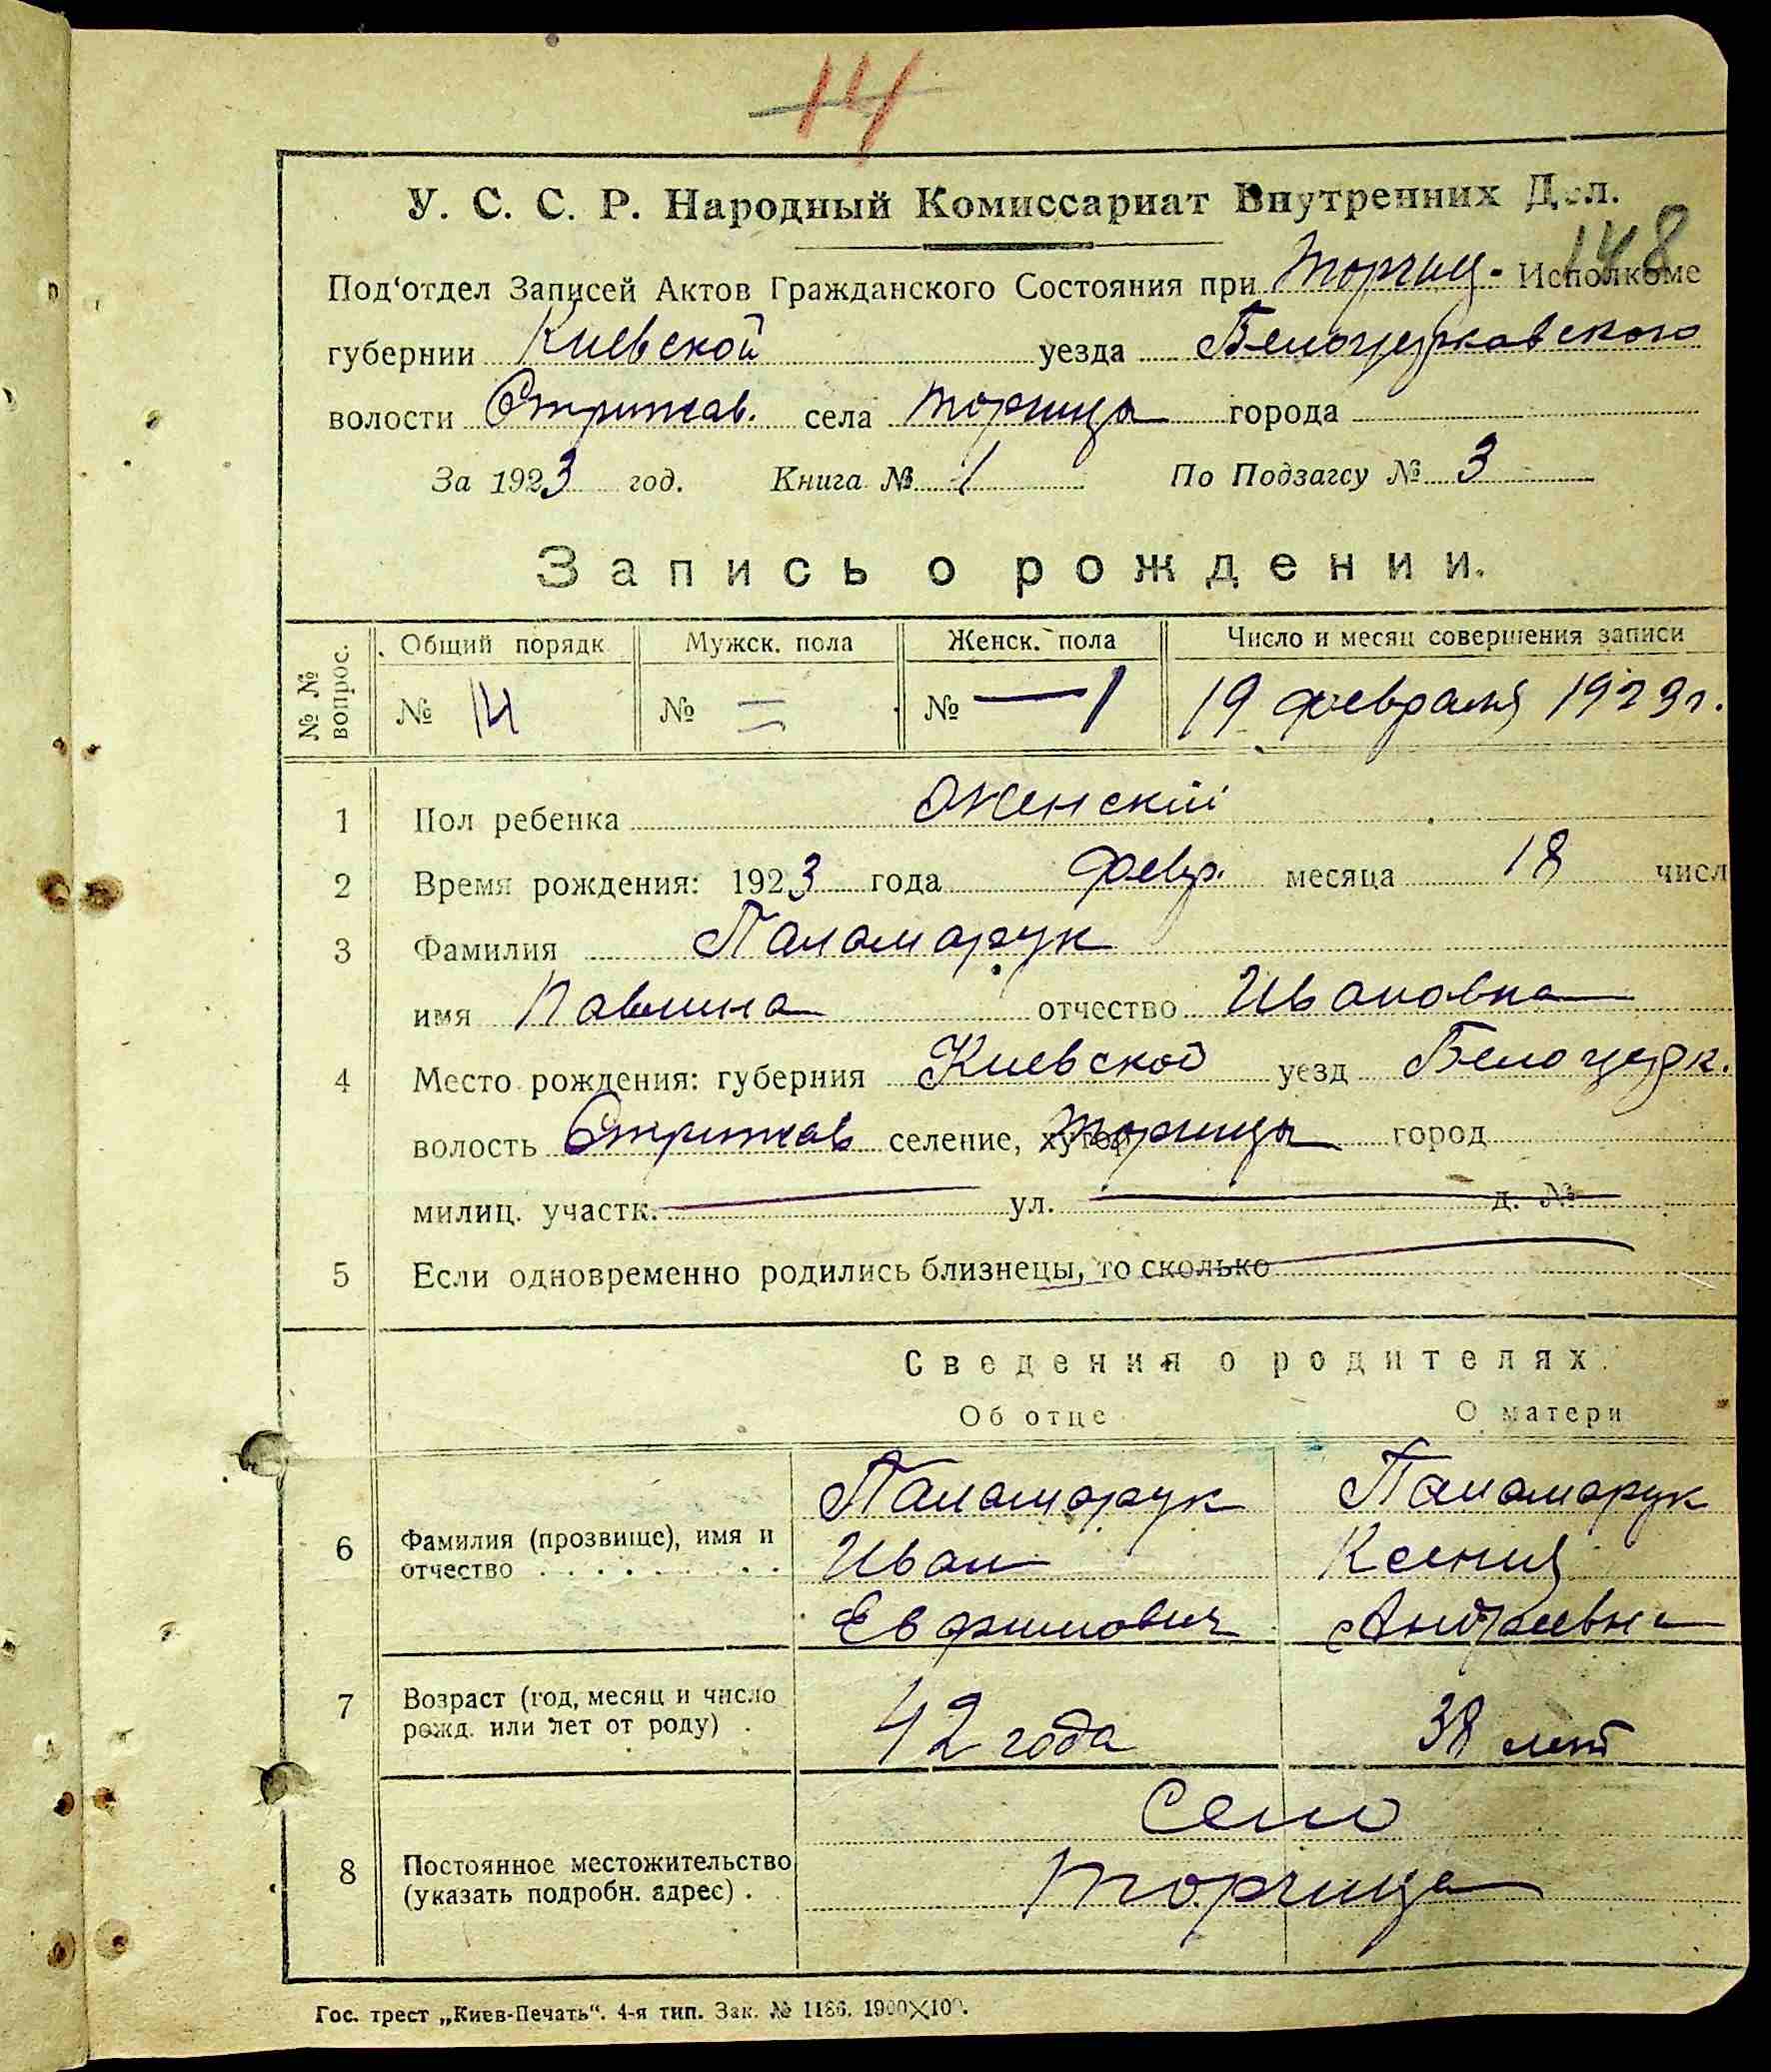 14
У. С. С. Р. Народный Комиссариат Внутренних Дел.
148
Под‘отдел Записей Актов Гражданского Состояния при Торчиц. Исполкоме
губернии Киевской уезда Белоцерковского
волости Стрижав. села Торчица города
За 1923 год. Книга № 1 По Подзагсу № 3
Запись о рождении.
№ № вопрос. Общий порядк Мужск. пола Женск. пола Число и месяц совершения записи
№ 14 № = № — 1 19 февраля 1923 г.
1 Пол ребенка Женский
2 Время рождения: 1923 года февр. месяца 18 числ
3 Фамилия Паламарук
имя Павлина отчество Ивановна
4 Место рождения: губерния Киевской уезд Белоцерк.
волость Стрижав селение, хутор Торчица город
милиц. участк. — ул. — д. №
5 Если одновременно родились близнецы, то сколько —
Сведения о родителях.
Об отце О матери
Паламарук Паламарук
6 Фамилия (прозвище), имя и отчество Иван Ксения
Евфимович Андреевна
7 Возраст (год, месяц и число рожд. или лет от роду) 42 года 38 лет
Село
8 Постоянное местожительство (указать подробн. адрес) Торчица
Гос. трест „Киев-Печать“. 4-я тип. Зак. № 1186. 1900×100.